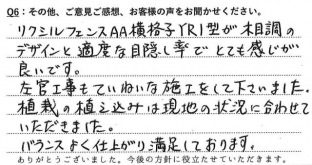 Q6：その他、ご意見ご感想、お客様の声をお聞かせください。
リクシルフェンスAA横格子YR1型が木目調の
デザインと適度な目隠し率でとても感じが
良いです。
左官工事もていねいな施工をして下さいました。
植栽の植え込みは現地の状況に合わせて
いただきました。
バランスよく仕上がり満足しております。
ありがとうございました。今後の方針に役立たせていただきます。